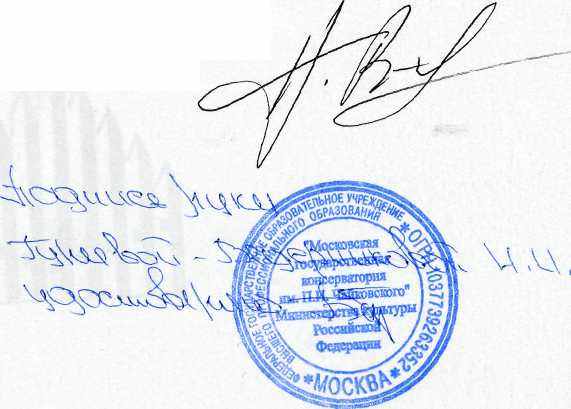 Н. В
Подпись руки
Н.И.
удостоверяю
ФЕДЕРАЛЬНОЕ ГОСУДАРСТВЕННОЕ ОБРАЗОВАТЕЛЬНОЕ УЧРЕЖДЕНИЕ
ВЫСШЕГО ПРОФЕССИОНАЛЬНОГО ОБРАЗОВАНИЯ
* ОГРН 1037739263352 *
"Московская
государственная
консерватория
им. П.И. Чайковского"
Министерства культуры
Российской
Федерации
*МОСКВА*